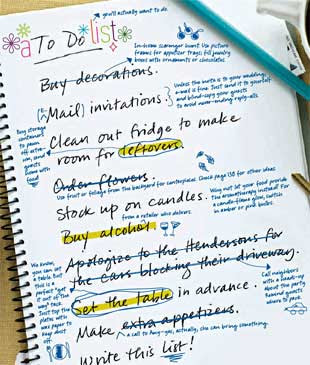 you'll actually want to do.
a To Do list
In-home scavenger hunt: Use picture
frames for appetizer trays; fill jewelry
boxes with ornaments or chocolates.
Buy decorations.
(E-Mail) invitations.
Unless the invite is to your wedding,
email is fine. Just send it to yourself
and blind-copy your guests
to avoid never-ending reply-alls
Buy storage
containers
to pawn
off extras
on, send
guests
home with
food
Clean out fridge to make
room for leftovers.
Order flowers.
Use fruit or foliage from the backyard for centerpieces. Check page 138 for other ideas
Stock up on candles.
Why not let your food provide
the aromatherapy instead? For
a candle-flame glow, switch
in amber or pink bulbs.
Buy alcohol
from a retailer who delivers.
Apologize to the Hendersons for
the cars blocking their driveway.
Call neighbors
with a heads-up
about the party
&
where to park.
We know,
you can set
a table but
this is a
perfect "get
it out of the
way" task.
Just top the
plates with
wax paper to
keep dust
off.
Set the table in advance.
Make extra appetizers.
a call to Amy-yes, actually, she can bring something.
Write this list!